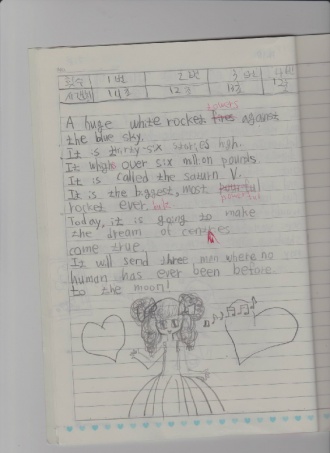 횟수 1번 2번 3번 4번
시간 12초
towers
A huge white rocket fires against
the blue sky.
It is thirty-six stories high.
It weighs over six million pounds.
It is called the Saturn V.
It is the biggest, most powerful
powerful
rocket ever
Today, it is going to make
the dream of centuries
come true.
It will send three men where no
human has ever been before
to the moon!